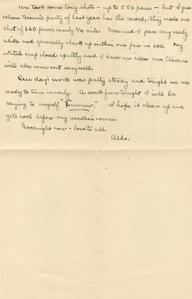 we took some long shots - up to 550 paces - but I guess
Nelson Mannie's party of last year has the record; they made one
shot of 660 paces nearly 3/4 mile. Max and I pace very nearly
alike and generally check up within one pace in 200. My
sketch map closed exactly and I have an idea our traverse
will also come out very well.
Our day's work was pretty steady and tonight we are
ready to turn in early. A week from tonight I will be
saying to myself "Tomorrow." I hope it clears up and
gets cool before my vacation comes.
Goodnight now - love to all
Aldo.